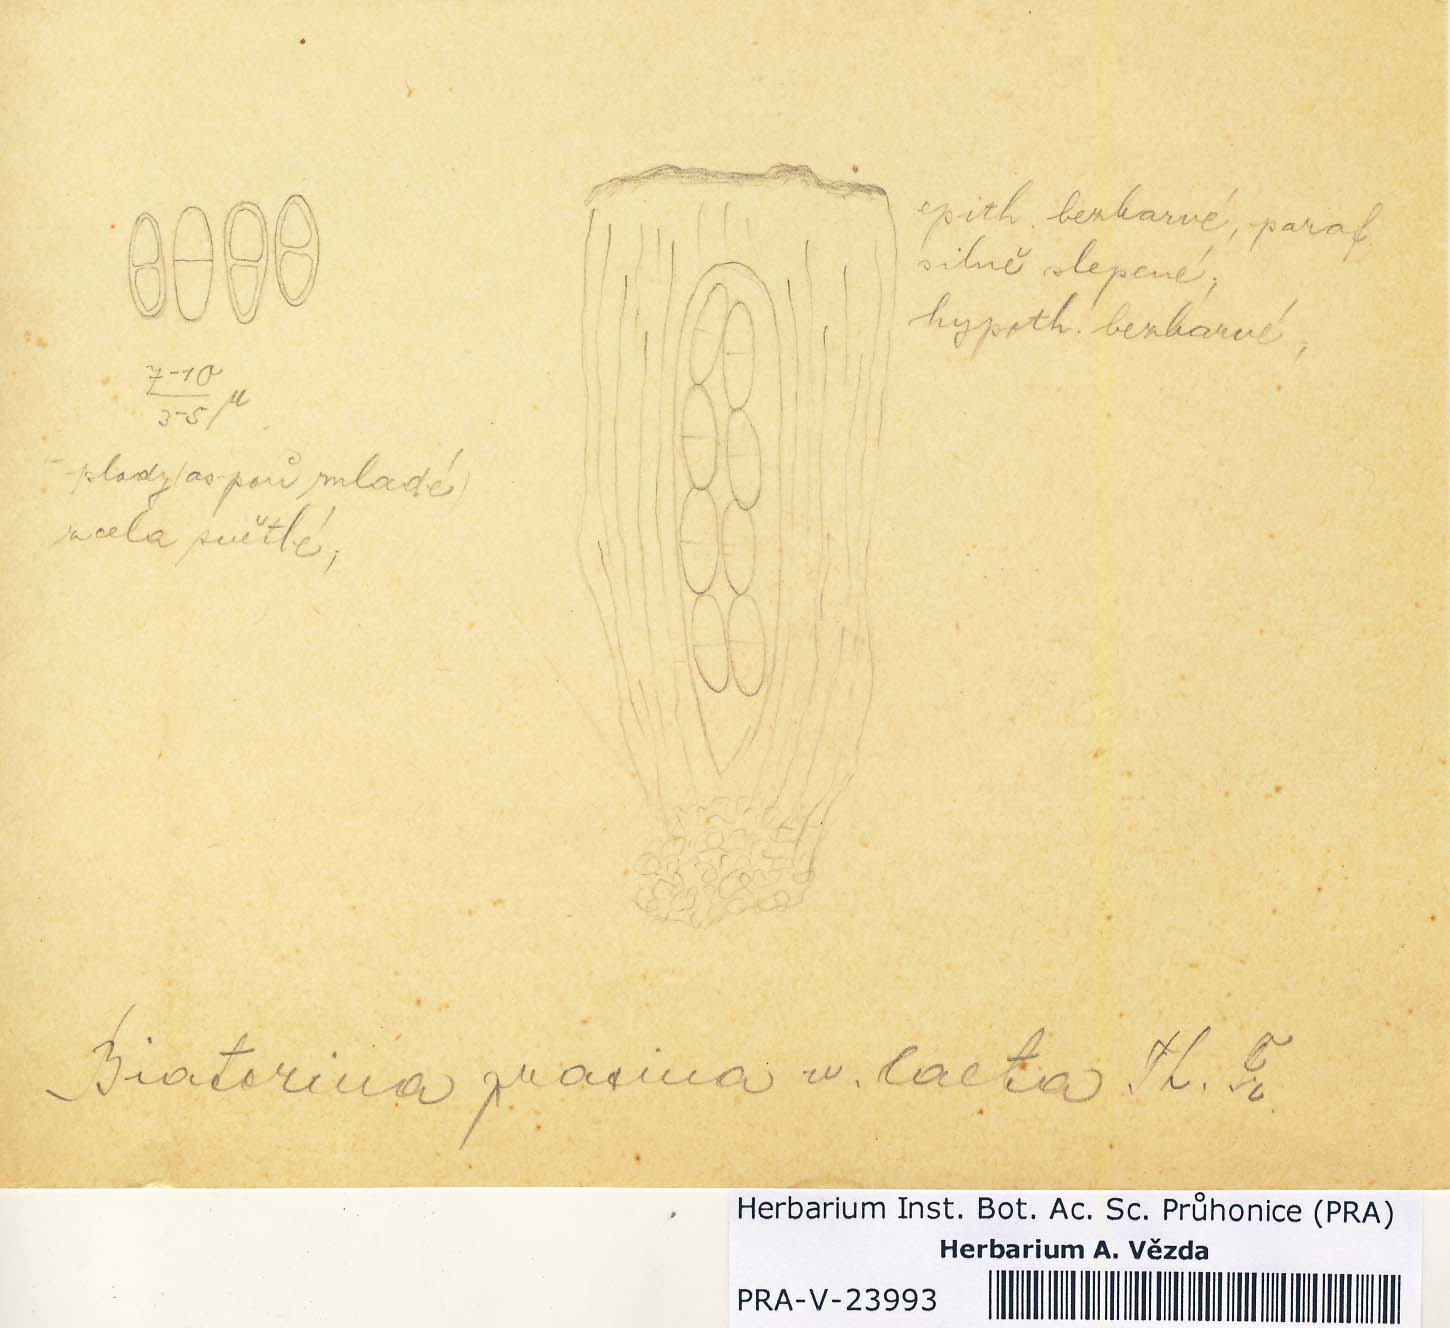 epith. bezbarvé, paraf.
silně slepené,
hypoth. bezbarvé,
7-10
3-5 μ
plody (aspoň mladé)
zcela světlé,
Biatorina prasina v. laeta Th. Fr.
Herbarium Inst. Bot. Ac. Sc. Průhonice (PRA)
Herbarium A. Vězda
PRA-V-23993